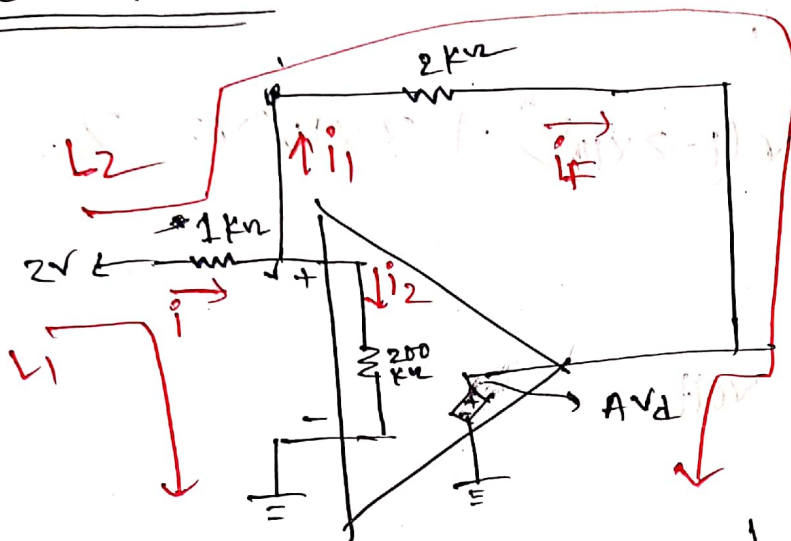 2kΩ
L2
i1
iF
*1kΩ
2V
+
i2
i
L1
200
kΩ
-
AVd